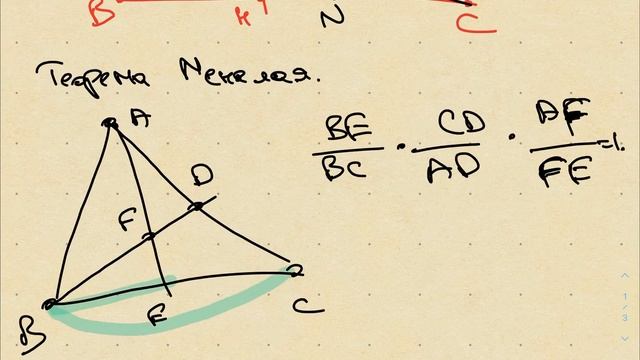 B N C
Теорема Менелая.
A
BE/BC · CD/AD · AF/FE =1.
D
F
B E C
1
/
3